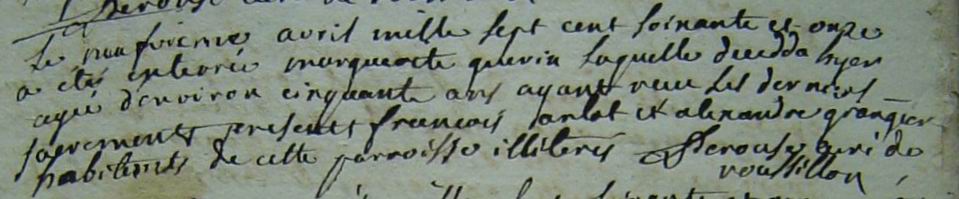 Derouse
Le neufvieme avril mille sept cent soixante et onze
a eté enterrée marguerite guerin laquelle deceda hyer
agée d'environ cinquante ans ayant receu les derniers
sacrements presents francois arlot et alexandre grangier
habitants de cette parroisse illiteres Derouse curé de
roussillon